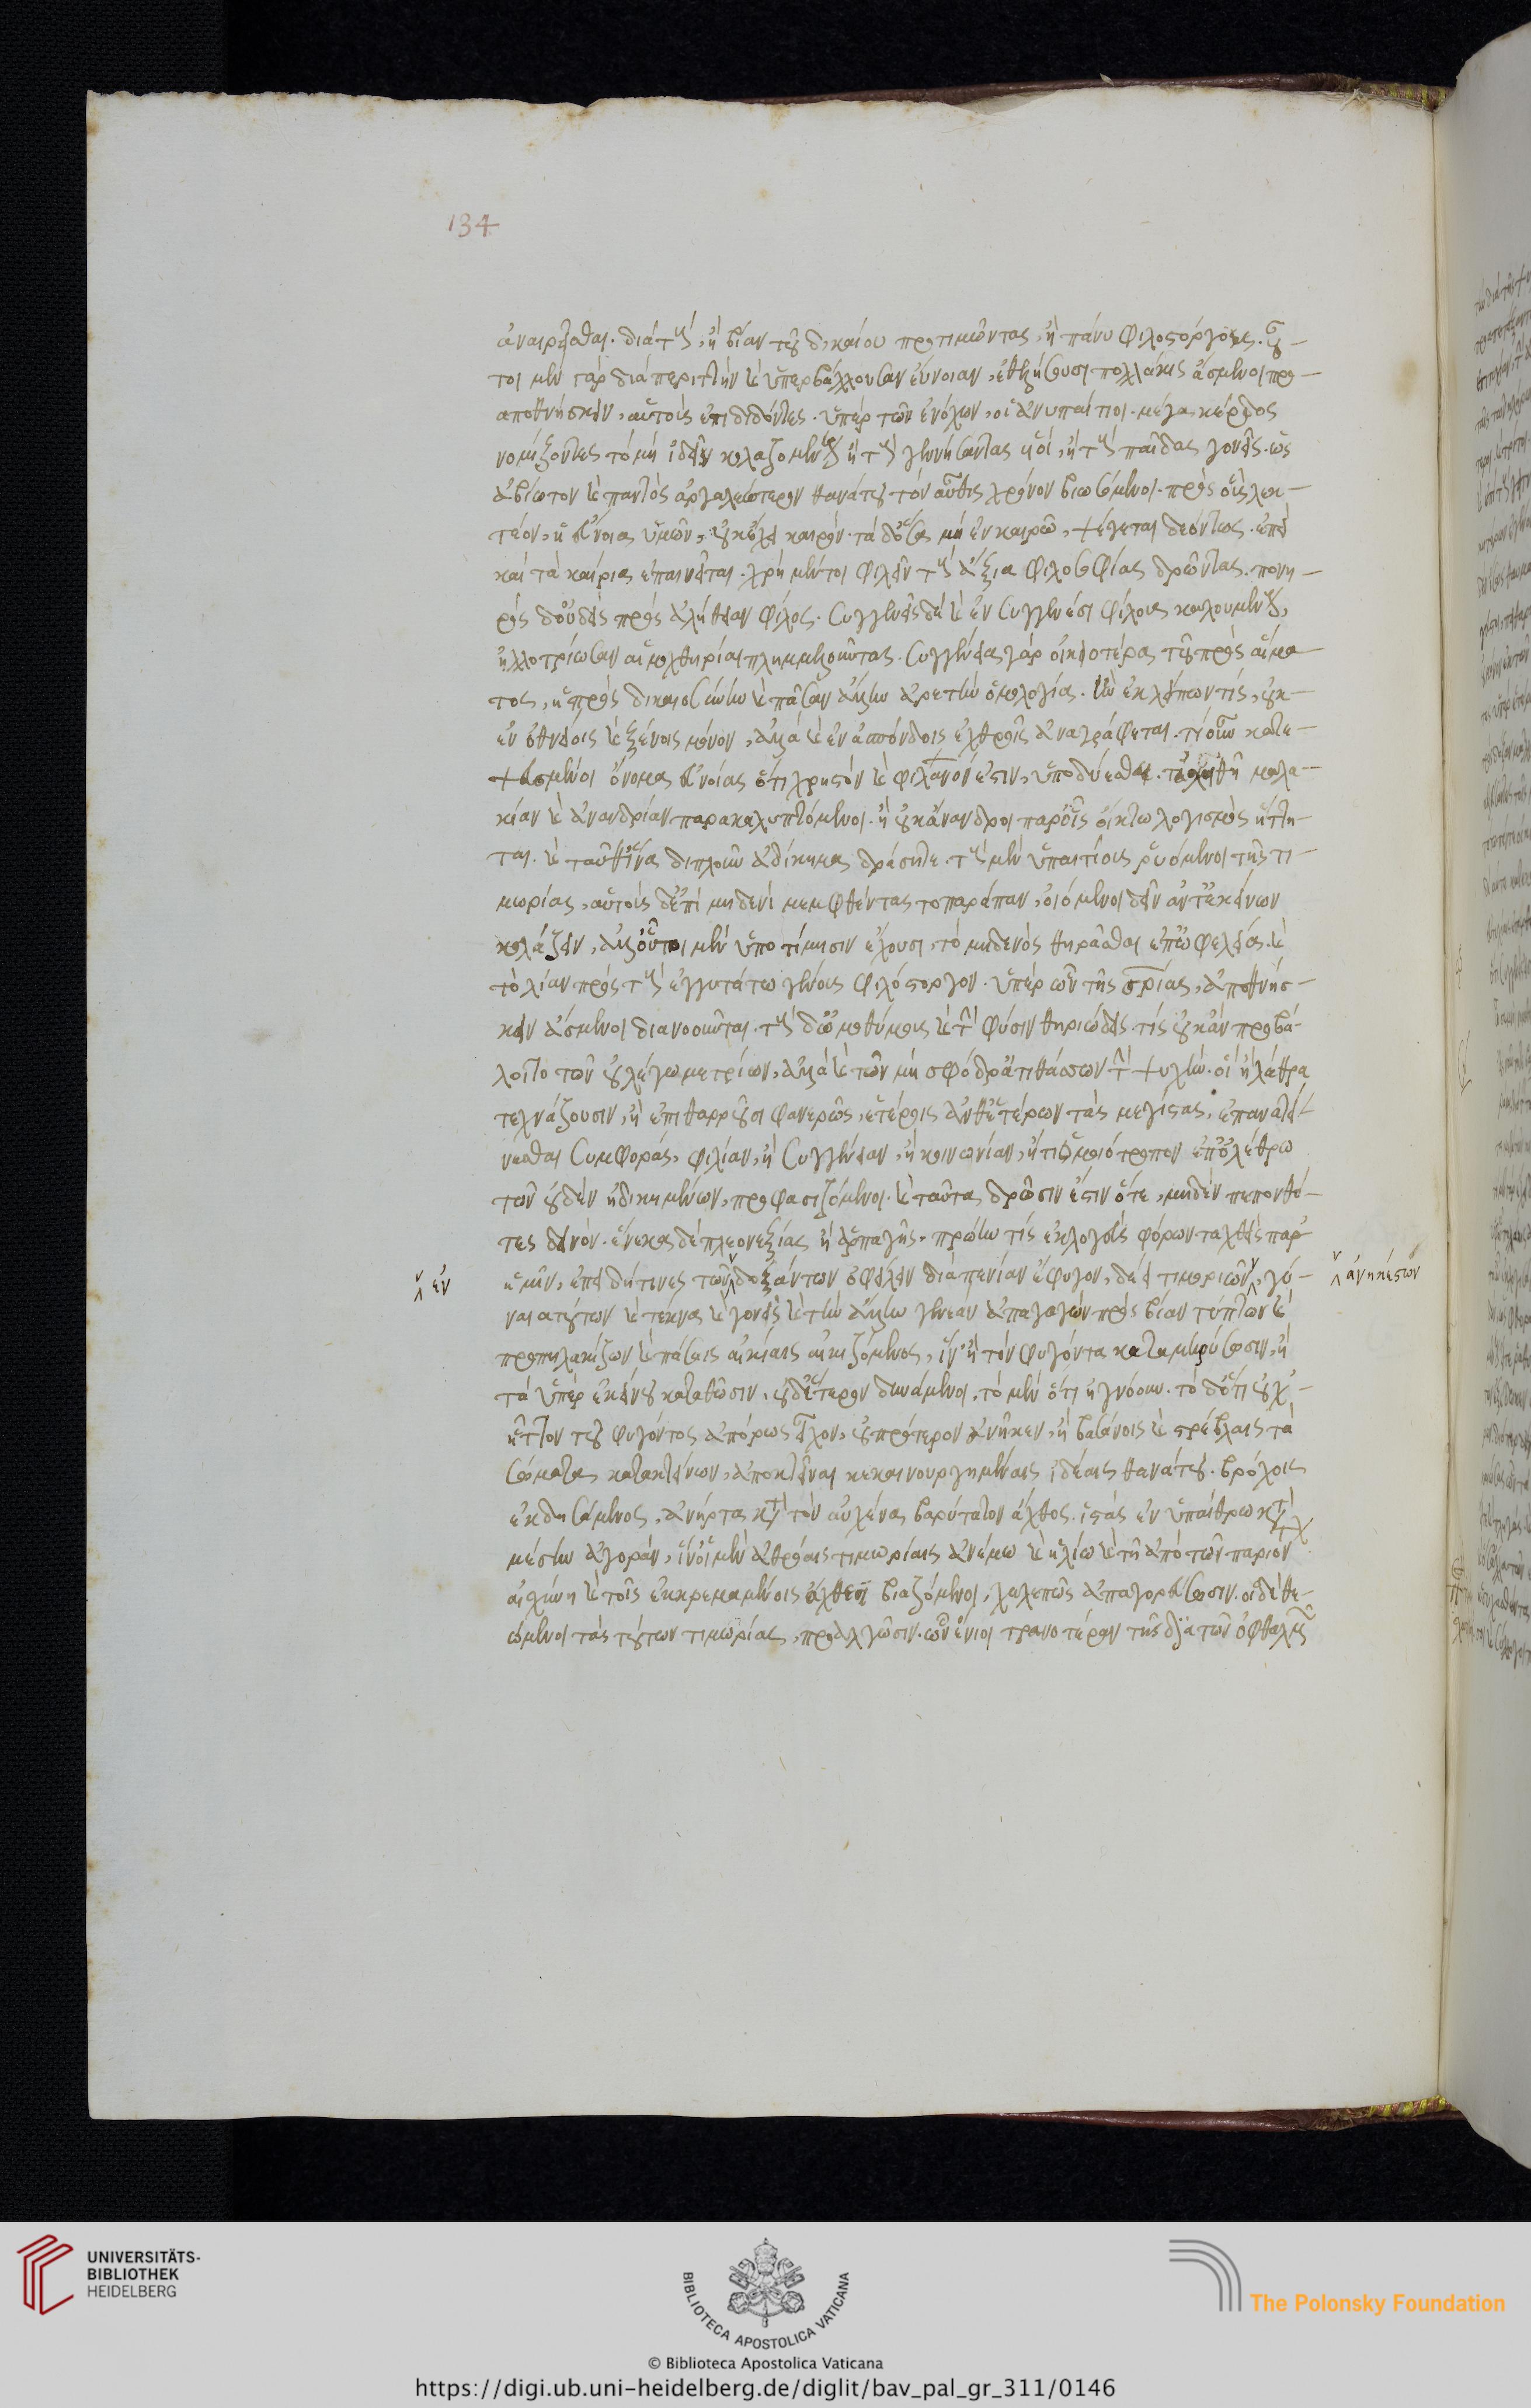 134
ἀναιρεῖσθαι. διὰ τοὺς, ἢ βίαν τοῦ δικαίου προτιμῶντας, ἢ πάνυ φιλοστόργους. οὗ-
τοι μὲν γὰρ διὰ περιττὴν καὶ ὑπερβάλλουσαν εὔνοιαν, ἐθελήσουσι πολλάκις ἄσμενοι προ-
αποθνήσκειν, αὑτοὺς ἐπιδιδόντες. ὑπὲρ τῶν ἐνόχων, οἱ ἀνυπαίτιοι. μέγα κέρδος
νομίζοντες τὸ μὴ ἰδεῖν κολαζομένους ἢ τοὺς γεννήσαντας υἱοί, ἢ τοὺς παῖδας γονεῖς. ὡς
ἀβίωτον καὶ παντὸς ἀργαλεώτερον θανάτου τὸν αὖθις χρόνον βιωσόμενοι. πρὸς οὓς λεκ-
τέον, ἡ εὔνοια ὑμῶν, οὐκ ἔχει καιρόν. τὰ δ' ὅσα μὴ ἐν καιρῶ, ψέγεται δεόντως. ἐπεὶ
καὶ τὰ καίρια ἐπαινεῖται. χρὴ μέντοι φιλεῖν τοὺς ἄξια φιλοσοφίας δρῶντας. πονη-
ρὸς δ' οὐδεὶς πρὸς ἀλήθειαν φίλος. συγγενεῖς δὲ καὶ ἐν συγγενέσι φίλους καλουμένους,
ἠλλοτρίωσαν αἱ μοχθηρίαι πλημμελοῦντας. συγγένεια γὰρ οἰκειοτέρα τῆς πρὸς αἵμα-
τος, ἡ πρὸς δικαιοσύνην καὶ πᾶσαν ἄλλην ἀρετὴν ὁμολογία. ἣν ἐκλείπων τίς, οὐκ
ἐν ὀθνείοις καὶ ξένοις μόνον, ἀλλὰ καὶ ἐν ἀσπόνδοις ἐχθροῖς ἀναγράφεται. τί οὖν κατε-
ψευσμένοι ὄνομα εὐνοίας ὅτι χρηστὸν καὶ φιλάνθρωπόν ἐστιν, ὑποδύεσθε. τἀληθῆ μαλα-
κίαν καὶ ἀνανδρίαν παρακαλυπτόμενοι. ἢ οὐκ ἄνανδροι παρ' οἷς οἴκτω λογισμὸς ἥττη-
ται. καὶ ταῦθ' ἵνα διπλοῦν ἀδίκημα δράσητε. τοὺς μὲν ὑπαιτίους ῥυόμενοι τῆς τι-
μωρίας, αὑτοὺς δ' ἐπὶ μηδενὶ μεμφθέντας τοπαράπαν, οἰόμενοι δεῖν ἀντ' ἐκείνων
κολάζειν, ἀλλ' οὗτοι μὲν ὑποτίμησιν ἔχουσι, τὸ μηδενὸς θηρᾶσθαι ἐπ' ὠφελείας. καὶ
τὸ λίαν πρὸς τοὺς ἐγγυτάτω γένους φιλόστοργον. ὑπὲρ ὧν τῆς σωτηρίας, ἀποθνήσ-
κειν ἄσμενοι διανοοῦνται. τοὺς δ' ὠμοθύμους καὶ τὴν φύσιν θηριώδεις. τίς οὐκ ἂν προβά-
λοιτο τῶν οὐ λέγω μετρίων, ἀλλὰ καὶ τῶν μὴ σφόδρ' ἀτιθάσσων τὴν ψυχήν. οἳ ἢ λάθρα
τεχνάζουσιν, ἢ ἐπιθαρροῦσι φανερῶς, ἑτέροις ἀνθ' ἑτέρων τὰς μεγίστας, ἐπανατεί-
νεσθαι συμφοράς, φιλίαν, ἢ συγγένειαν, ἢ κοινωνίαν, ἤ τι ὁμοιότροπον ἐπ' ὀλέθρω
τῶν οὐδὲν ἠδικημένων, προφασιζόμενοι. καὶ ταῦτα δρῶσιν ἔστιν ὅτε, μηδὲν πεπονθό-
τες δεινόν. ἕνεκα δὲ πλεονεξίας ἢ ἁρπαγῆς. πρώην τίς ἐκλογεὺς φόρων ταχθεὶς παρ'
ἡμῖν, ἐπειδή τινες τῶν δοξάντων ὀφείλειν διὰ πενίαν ἔφυγον, δέει τιμωριῶν, γύ- ἀνηκέστων
ἐν ναια τούτων καὶ τέκνα καὶ γονεῖς καὶ τὴν ἄλλην γενεὰν ἀπαγαγὼν πρὸς βίαν τύπτων καὶ
προπηλακίζων καὶ πάσαις αἰκίαις αἰκιζόμενος, ἵν' ἢ τὸν φυγόντα καταμηνύσωσιν, ἢ
τὰ ὑπὲρ ἐκείνου καταθῶσιν, οὐδέτερον δυνάμενοι. τὸ μὲν ὅτι ἠγνόουν. τὸ δ' ὅτι οὐχ
ἧττον τοῦ φυγόντος ἀπόρως εἶχον, οὐ πρότερον ἀνῆκεν, ἢ βασάνοις καὶ στρέβλαις τὰ
σώματα κατακτείνων, ἀποκτεῖναι κεκαινουργημέναις ἰδέαις θανάτου. βρόχοις
ἐκδησάμενος, ἀνήρτα κατὰ τὸν αὐχένα βαρύτατον ἄχθος. ἱστὰς ἐν ὑπαίθρω κατὰ
μέσην ἀγοράν, ἵν' οἱ μὲν ἀθρόαις τιμωρίαις ἀνέμω καὶ ἡλίω καὶ τῆ ἀπὸ τῶν παριόντων
αἰσχύνη καὶ τοῖς ἐκκρεμαμένοις ἄχθεσι βιαζόμενοι, χαλεπῶς ἀπαγορεύσωσιν. οἱ δὲ θε-
ώμενοι τὰς τούτων τιμωρίας, προαλγῶσιν. ὧν ἔνιοι τρανοτέραν τῆς διὰ τῶν ὀφθαλμῶν
UNIVERSITÄTS-
BIBLIOTHEK
HEIDELBERG
BIBLIOTECA APOSTOLICA VATICANA
The Polonsky Foundation
© Biblioteca Apostolica Vaticana
https://digi.ub.uni-heidelberg.de/diglit/bav_pal_gr_311/0146